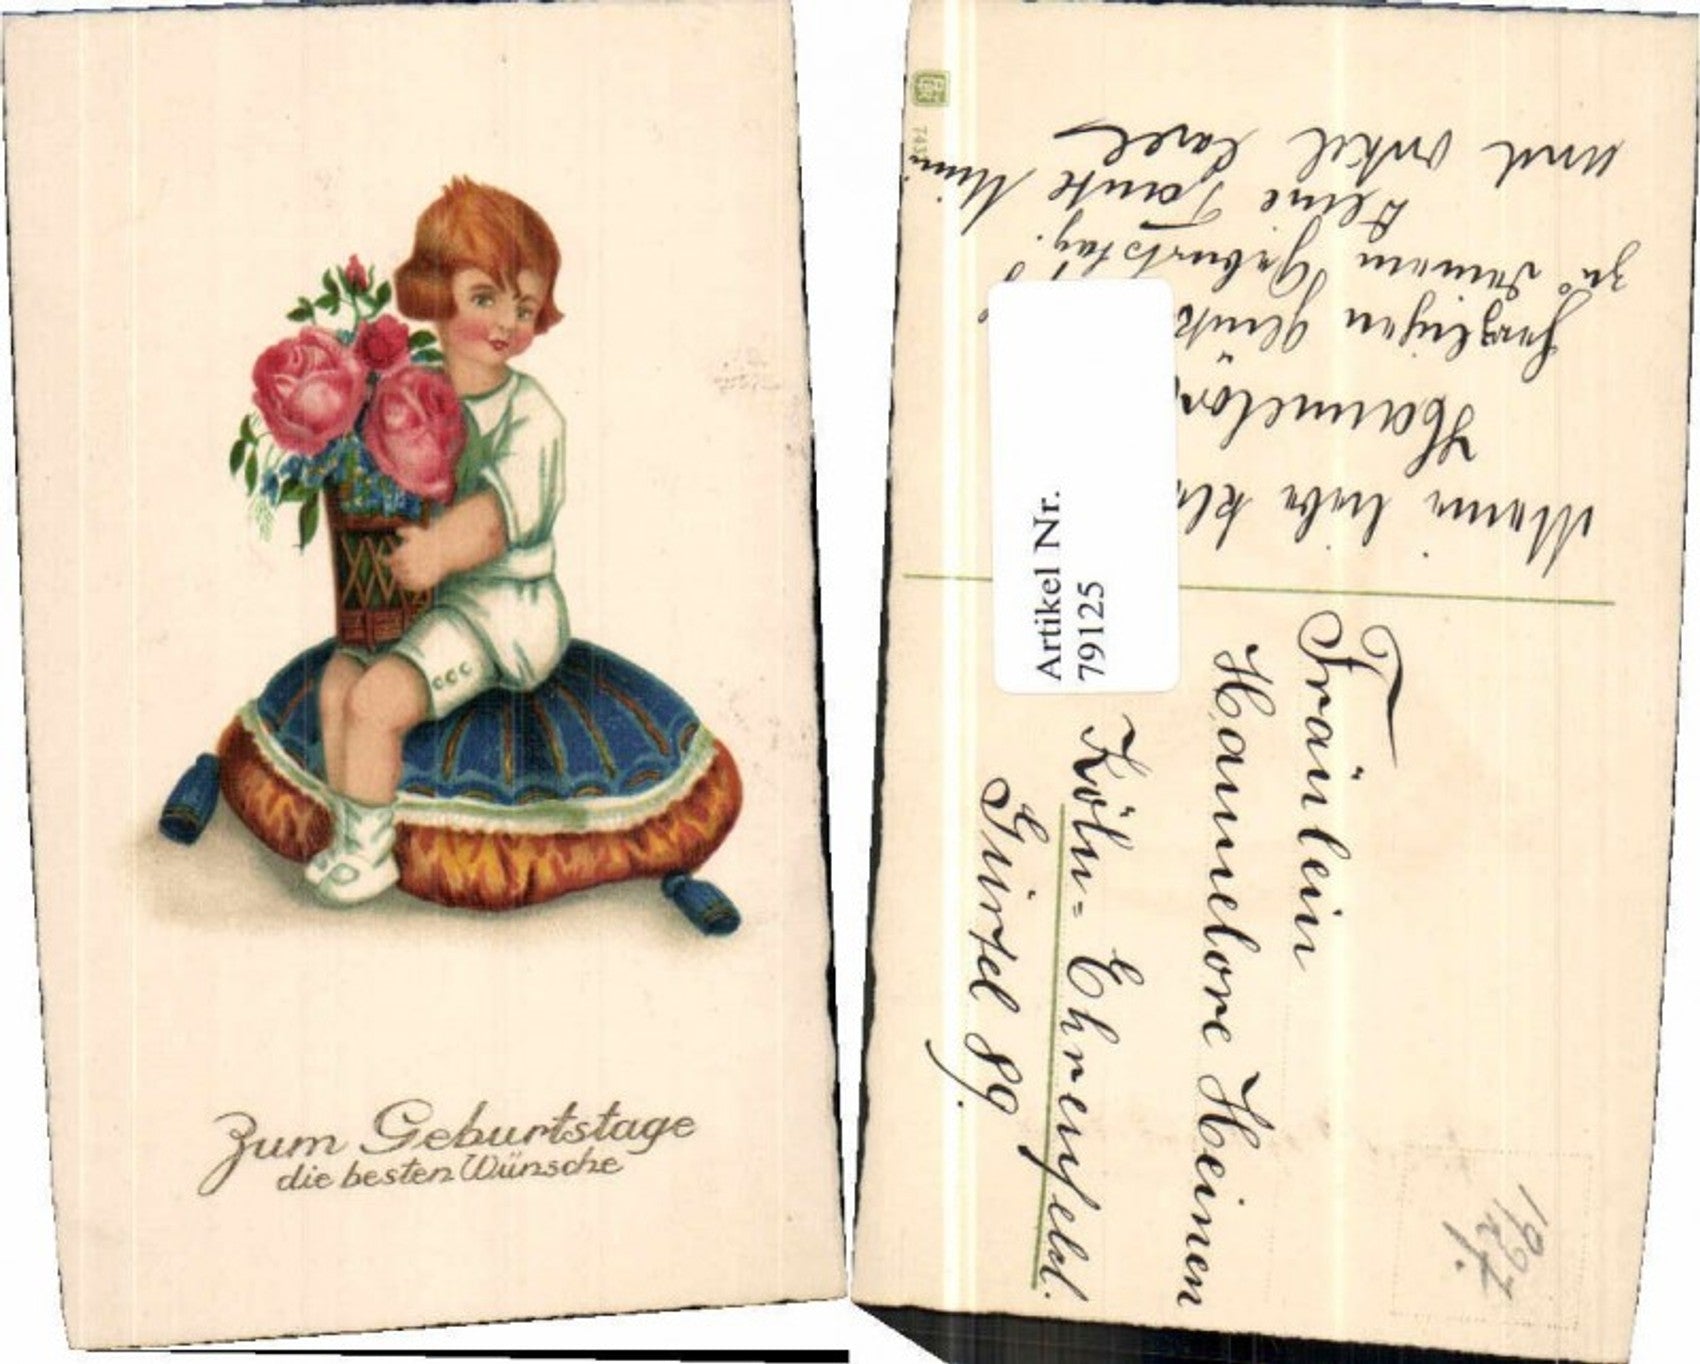 Zum Geburtstage
die besten Wünsche
743
Meine liebe
Hannelor
Herzlichen
zu deinem Geburtstag.
Deine Tante Mimi
und Onkel Carl
Artikel Nr.
79125
Fräulein
Hannelore Heinen
Köln= Ehrenfeld.
Gürtel 89.
1927.